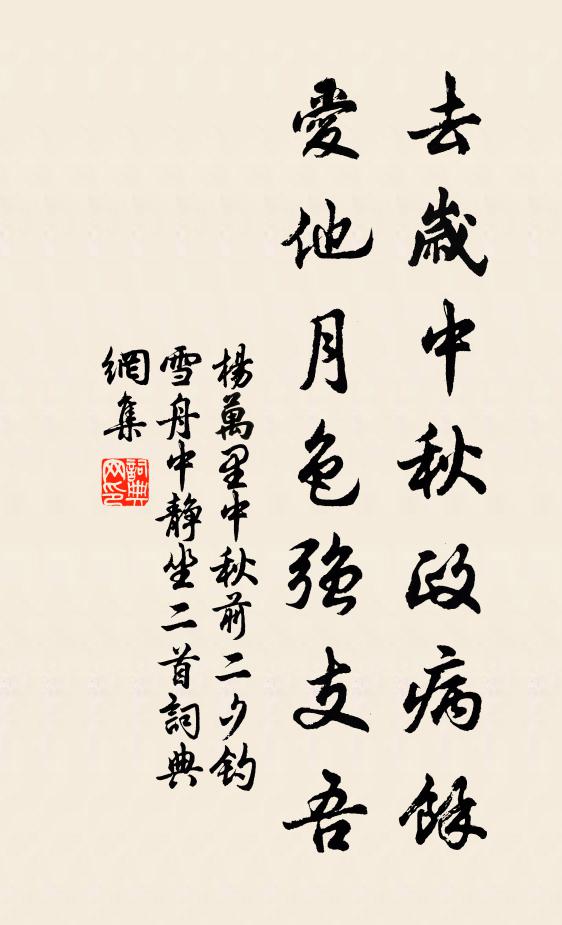 去歲中秋政病餘
愛他月色強支吾
楊萬里中秋前二夕釣
雪舟中靜坐二首詞典
網集
詞典网印